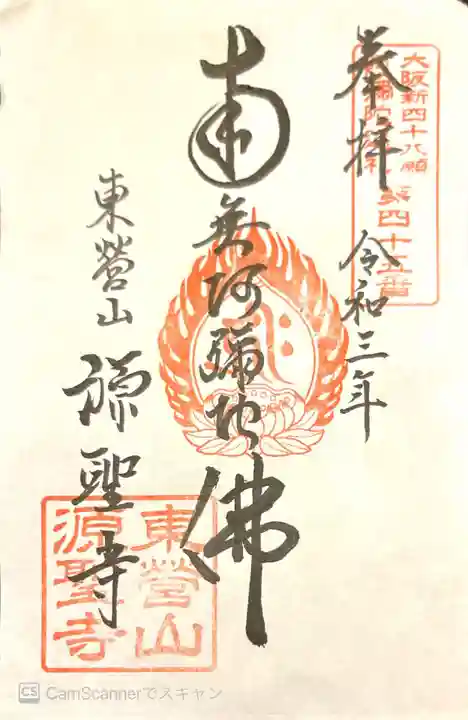 大阪新四十八願
阿彌陀巡礼 第四十五番
奉拝 令和三年
南無阿彌陀佛
東營山
源聖寺
東營山
源聖寺
CS CamScannerでスキャン